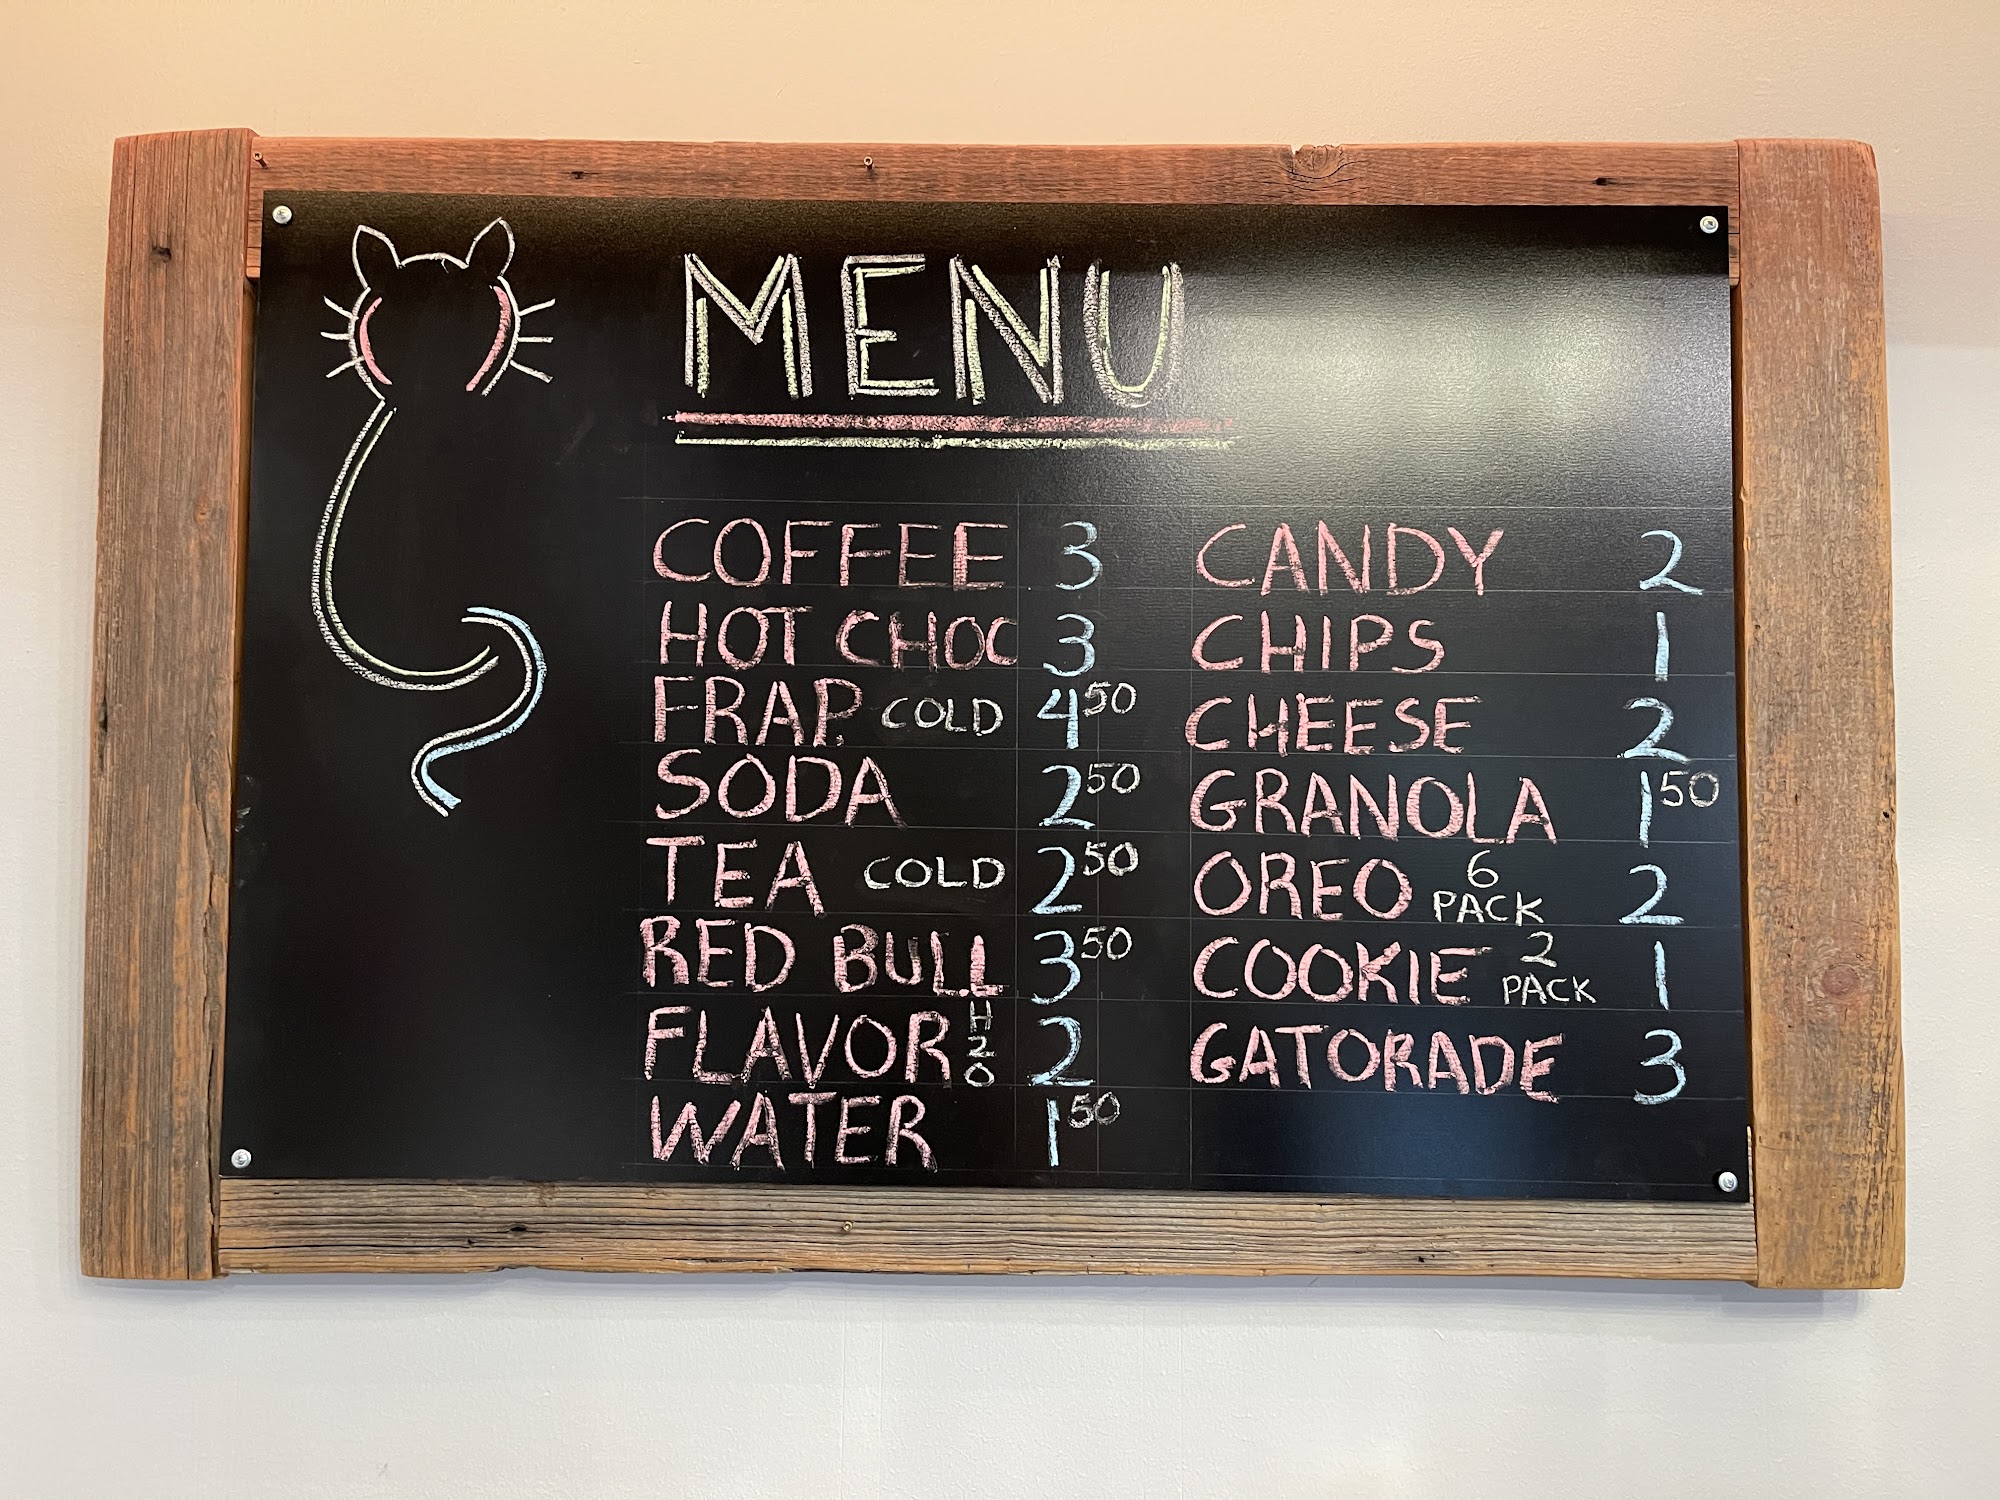 MENU
COFFEE 3
HOT CHOC 3
FRAP. COLD 4 50
SODA 2 50
TEA COLD 2 50
RED BULL 3 50
FLAVOR H2O 2
WATER 1 50
CANDY 2
CHIPS 1
CHEESE 2
GRANOLA 1 50
OREO 6 PACK 2
COOKIE 2 PACK 1
GATORADE 3